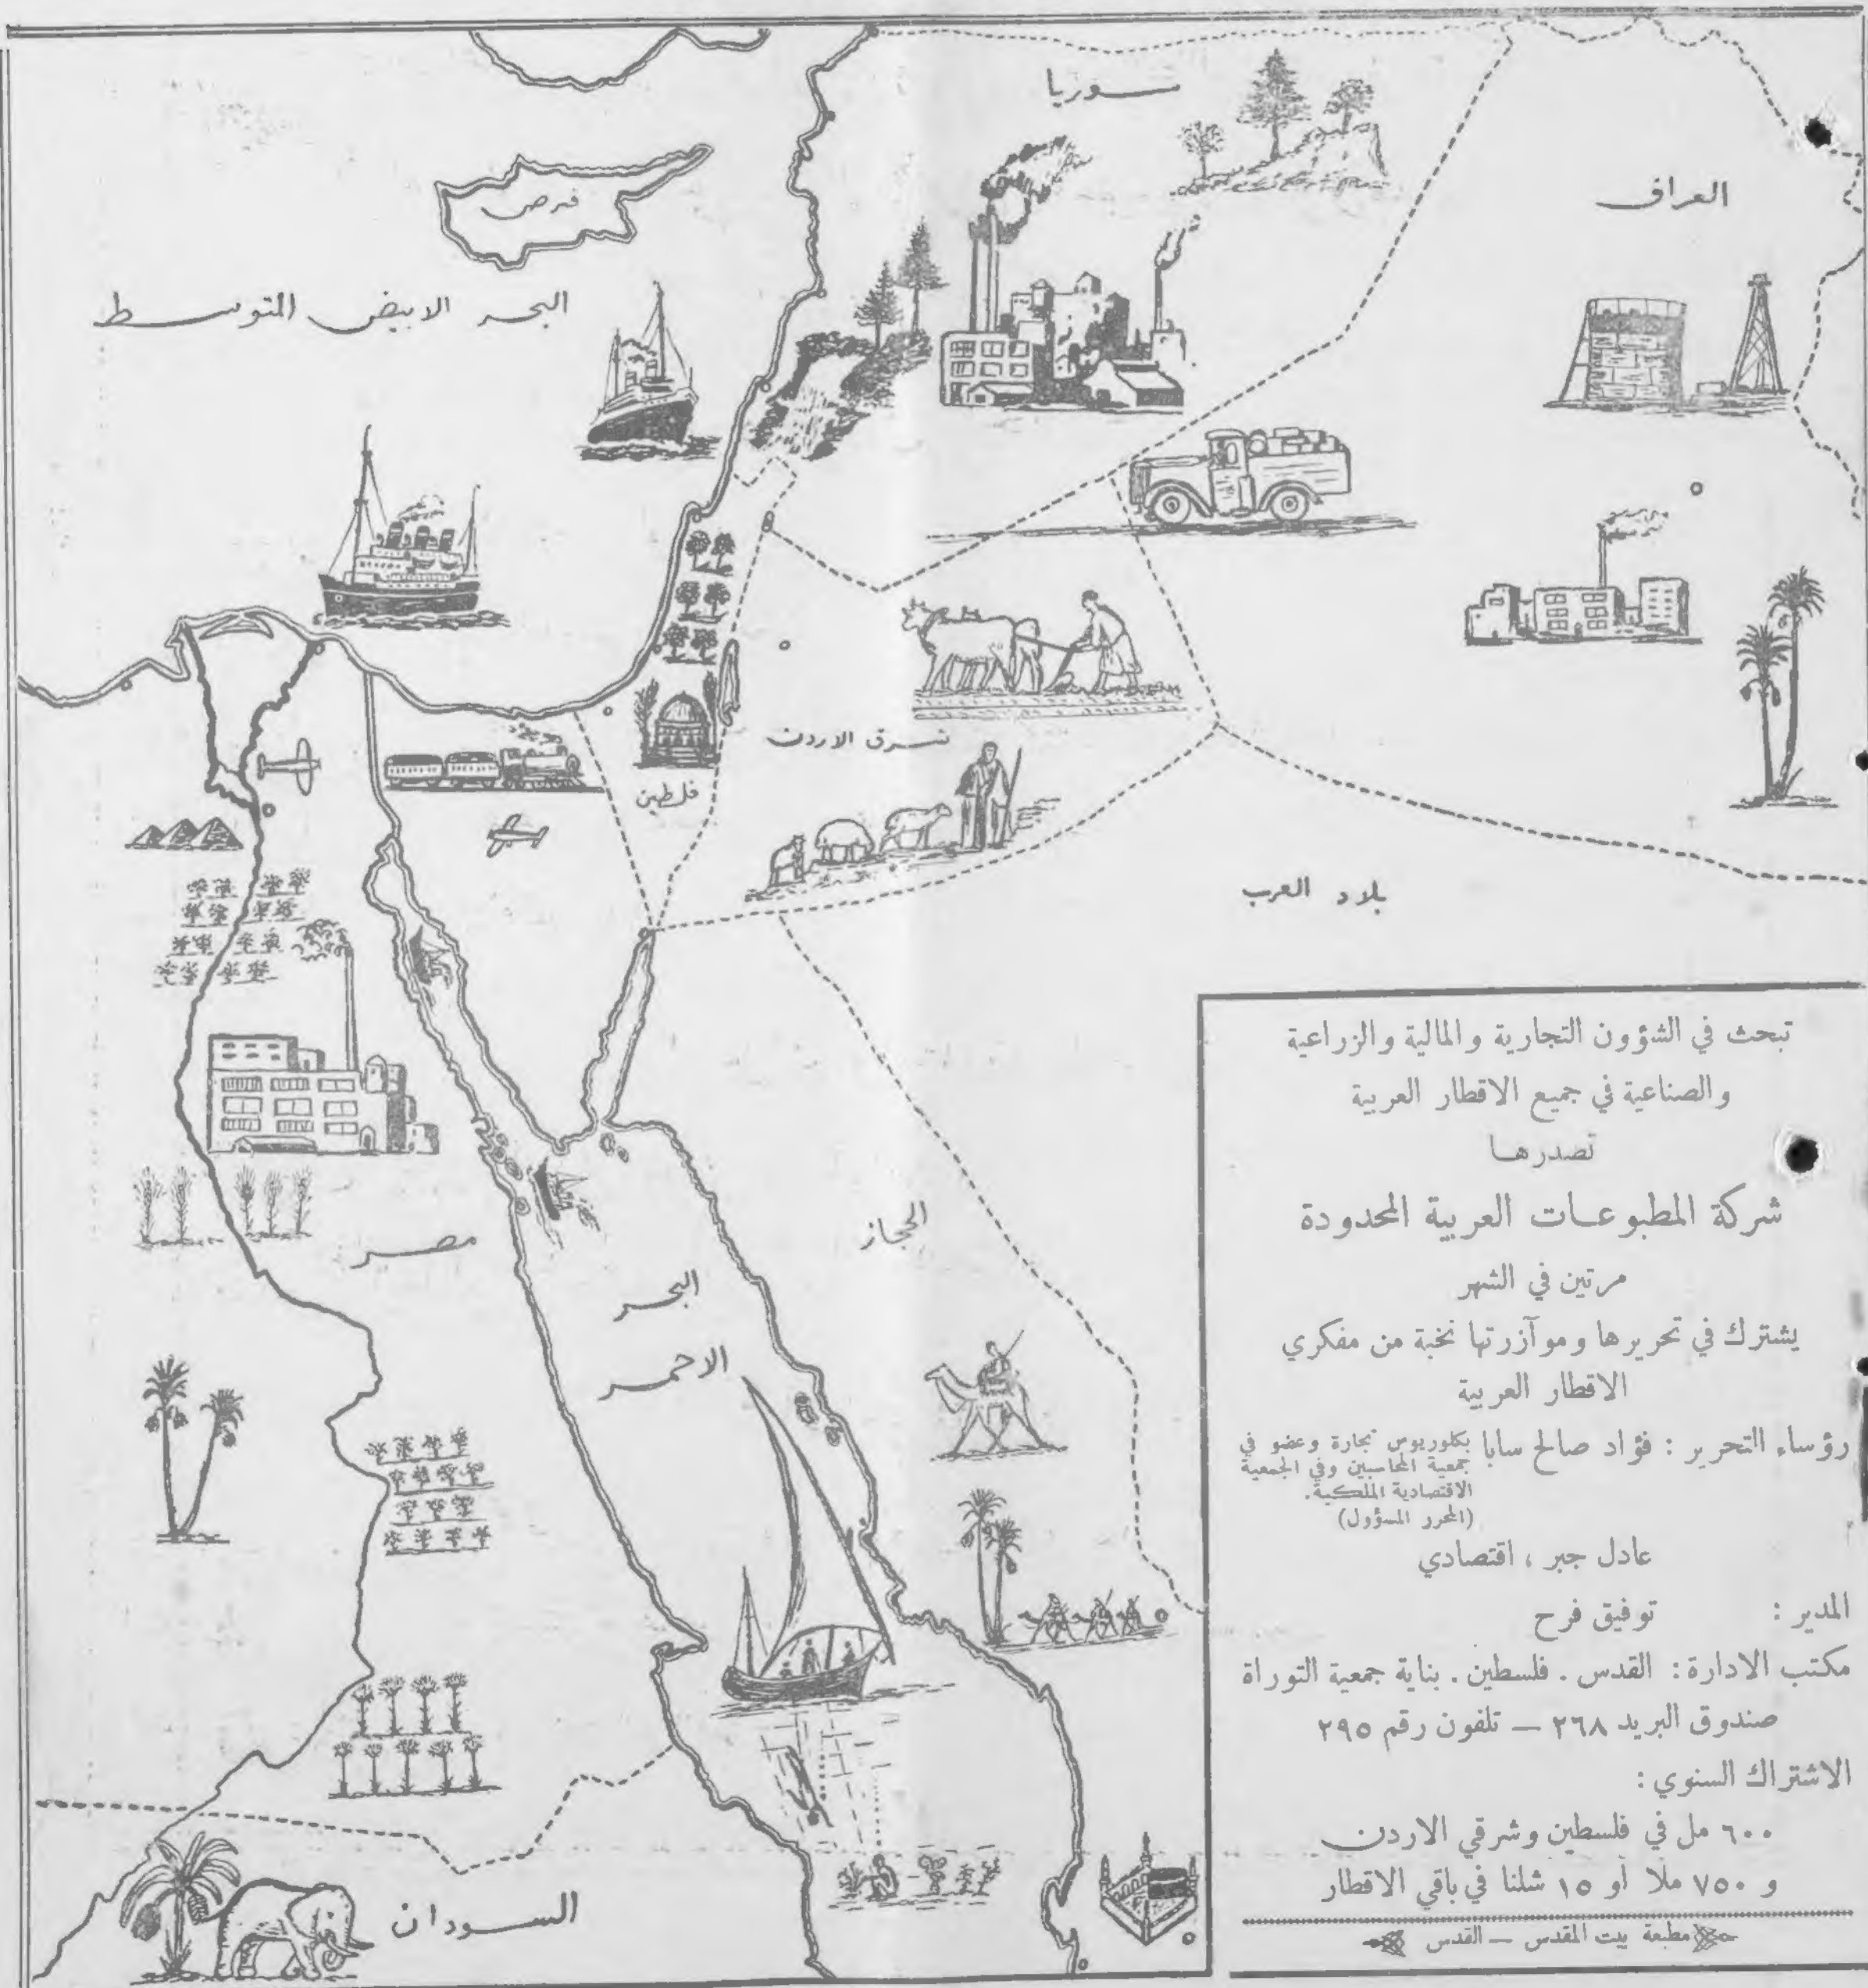 سوريا
العراق
قبرص
البحر الابيض المتوسط
شرق الاردن
فلسطين
بلاد العرب
الحجاز
مصر
البحر
الاحمر
السودان
تبحث في الشؤون التجارية والمالية والزراعية
والصناعية في جميع الاقطار العربية
تصدرها
شركة المطبوعات العربية المحدودة
مرتين في الشهر
يشترك في تحريرها وموآزرتها نخبة من مفكري
الاقطار العربية
رؤساء التحرير : فؤاد صالح سابا بكلوريوس تجارة وعضو في
جمعية المحاسبين وفي الجمعية
الاقتصادية الملكية.
(المحرر المسؤول)
عادل جبر ، اقتصادي
المدير : توفيق فرح
مكتب الادارة : القدس . فلسطين . بناية جمعية التوراة
صندوق البريد ٢٦٨ — تلفون رقم ٢٩٥
الاشتراك السنوي :
٦٠٠ مل في فلسطين وشرقي الاردن
و ٧٥٠ ملا أو ١٥ شلنا في باقي الاقطار
مطبعة بيت المقدس — القدس